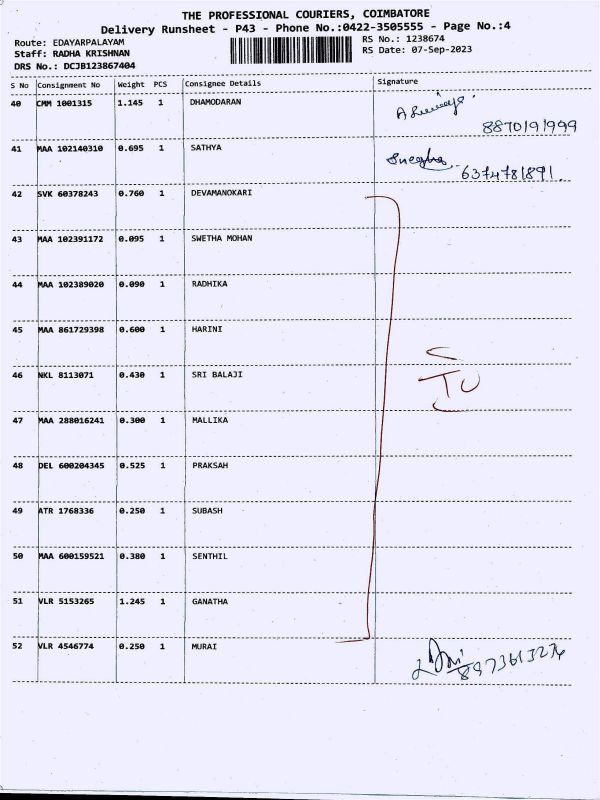 THE PROFESSIONAL COURIERS, COIMBATORE
Delivery Runsheet - P43 - Phone No.:0422-3505555 - Page No.:4
Route: EDAYARPALAYAM RS No.: 1238674
Staff: RADHA KRISHNAN RS Date: 07-Sep-2023
DRS No.: DCJB123867404
S No Consignment No Weight PCS Consignee Details Signature
40 CMM 1001315 1.145 1 DHAMODARAN
8870191999
41 MAA 102140310 0.695 1 SATHYA Sneqha
6374781891.
42 SVK 60378243 0.760 1 DEVAMANOKARI
43 MAA 102391172 0.095 1 SWETHA MOHAN
44 MAA 102389020 0.090 1 RADHIKA
45 MAA 861729398 0.600 1 HARINI
46 NKL 8113071 0.430 1 SRI BALAJI
47 MAA 288016241 0.300 1 MALLIKA
48 DEL 600204345 0.525 1 PRAKSAH
49 ATR 1768336 0.250 1 SUBASH
50 MAA 600159521 0.380 1 SENTHIL
51 VLR 5153265 1.245 1 GANATHA
52 VLR 4546774 0.250 1 MURAI